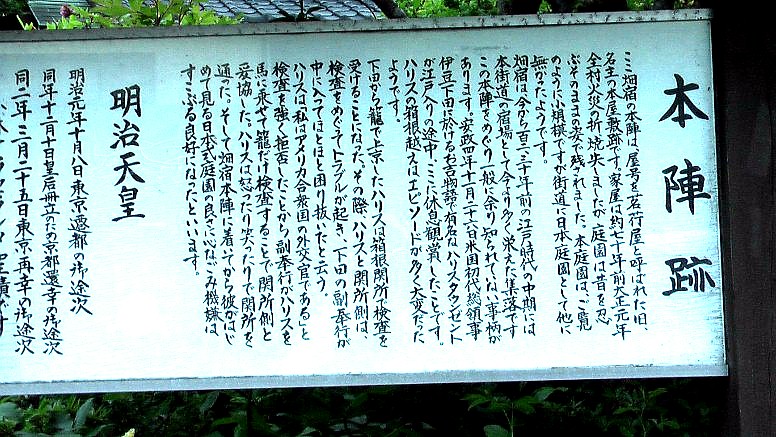 本陣跡
ここ畑宿の本陣は、屋号を茗荷屋と呼ばれた旧、
名主の本屋敷跡です。家屋は約七十年前大正元年
全村火災の折焼失しましたが庭園は昔を忍
ぶそのままの姿で残されました。本庭園は、ご覧
のように小規模ですが街道に日本庭園として他に
無かったようです。
畑宿は、今から百二三十年前の江戸時代の中期には
本街道の宿場として今より多く栄えた集落です
この本陣をめぐり一般に余り知られていない事柄が
あります。安政四年十一月二十六日米国初代総領事
伊豆下田に於けるお吉物語で有名なハリスタウンゼント
が江戸入りの途中、ここに休息観賞したことです。
ハリスの箱根越えはエピソードが多く大変だった
ようです。
下田から籠で上京したハリスは箱根関所で検査を
受けることになった。その際ハリスと関所側は、
検査をめぐってトラブルが起き、下田の副奉行が
中に入ってほとほと困り抜いたと云う。
ハリスは「私はアメリカ合衆国の外交官である」と
検査を強く拒否したことから副奉行がハリスを
馬に乗せて籠だけ検査することで関所側と
妥協した。ハリスは怒ったり笑ったりで関所を
通った。そして畑宿本陣に着いてから彼がはじ
めて見る日本式庭園の良さに心なごみ機嫌は、
すこぶる良好になったといいます。
明治天皇
明治元年十月八日東京遷都の御途次
同年十二月十日皇后冊立ため京都還幸の御途次
同二年三月二十五日東京再幸の御途次